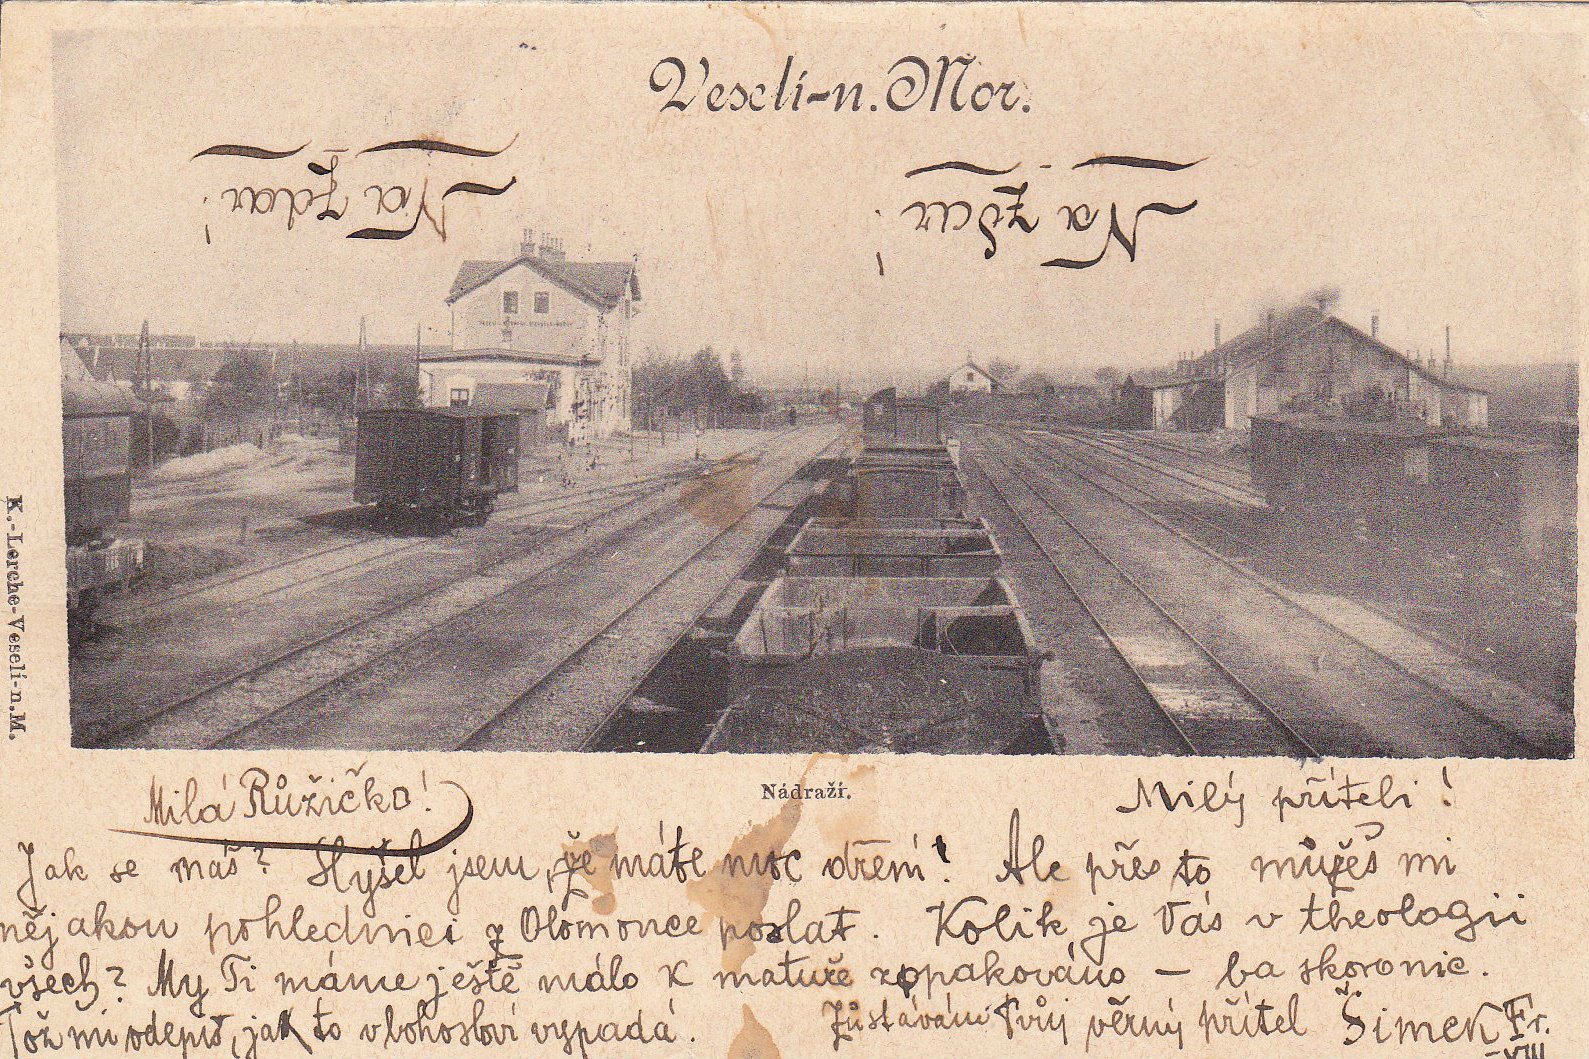 Veselí-n. Mor.
Na zdar!
Na zdar!
K.-Lerche-Veselí-n.M.
Nádraží.
Milá Růžičko!
Milý příteli!
Jak se máš? Slyšel jsem, že máte moc dření! Ale přes to můžeš mi
nějakou pohlednici z Olomouce poslat. Kolik je Vás v theologii
všech? My Ti máme ještě málo k matuře zopakováno — ba skoro nic.
Tož mi odepiš, jak to v bohosloví vypadá. Zůstávám Tvůj věrný přítel Šimek Fr.
VIII